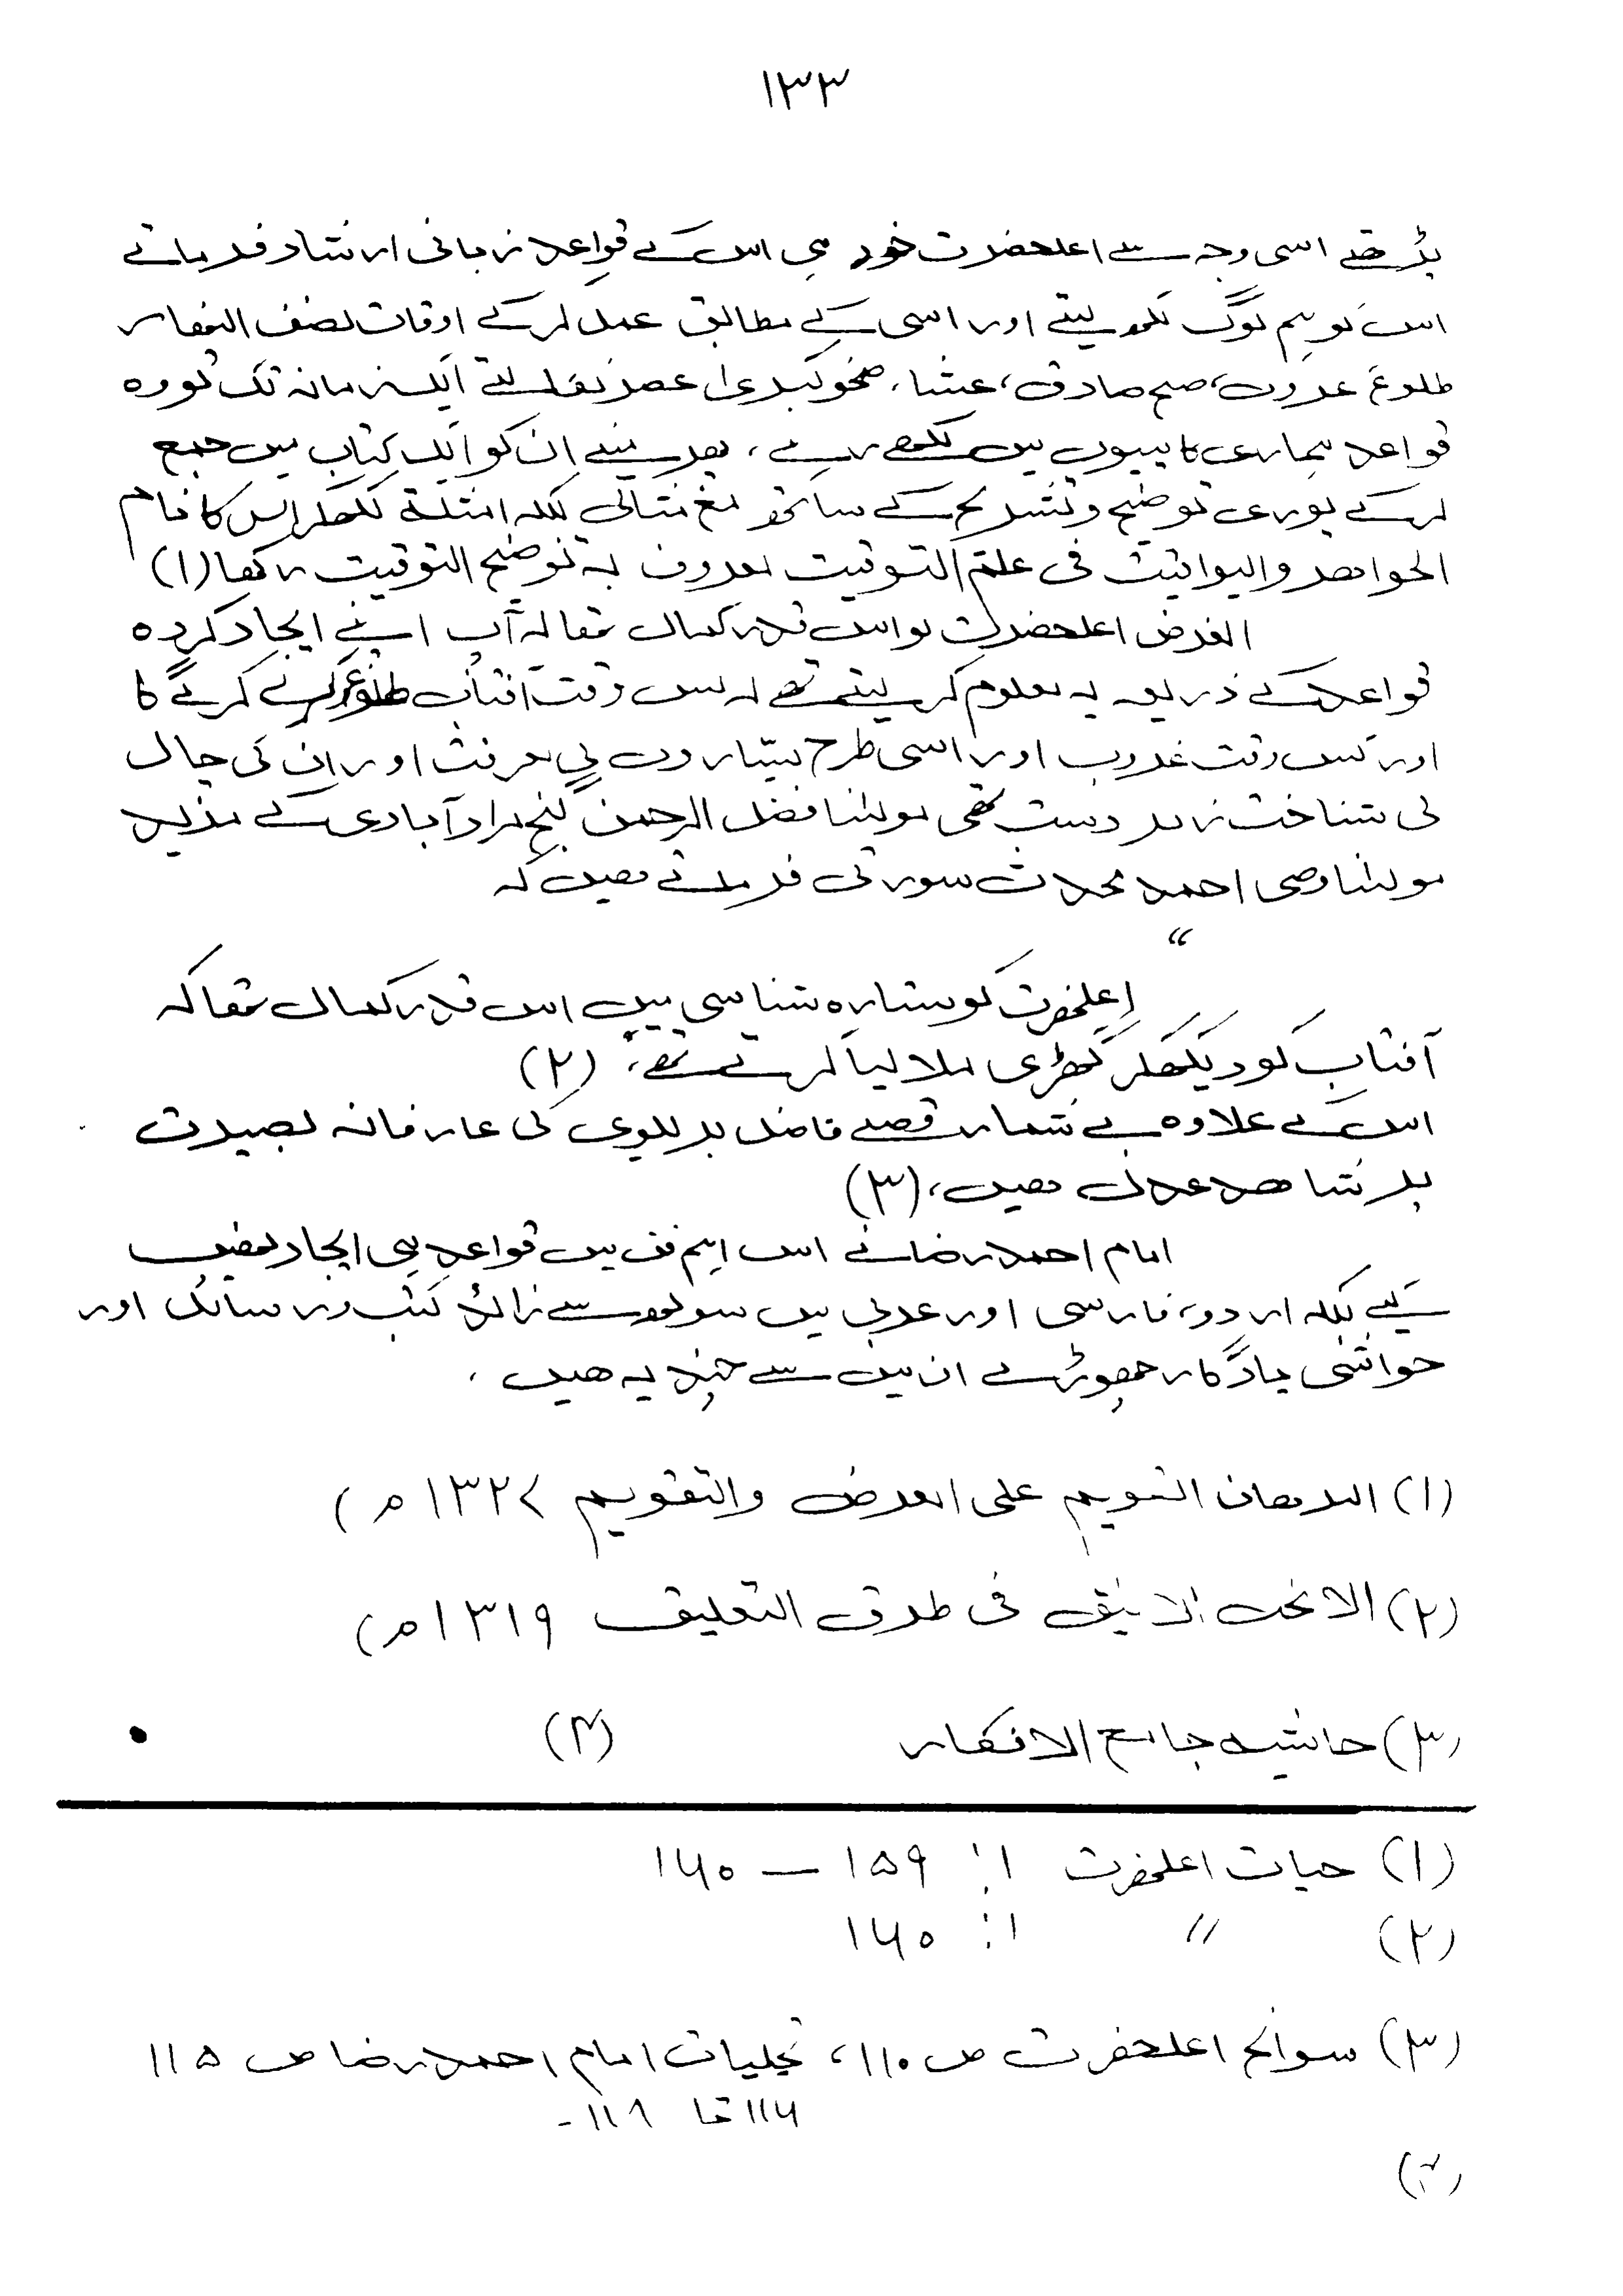 ۱۳۳
پڑھتے اسی وجہ سے اعلحضرت خود ہی اس کے قواعد زبانی ارشاد فرماتے
اس کو ہم لوگ لکھ لیتے اور اسی کے مطابق عمل کرکے اوقات نصف النھار
طلوع غروب، صبح صادق، عشا، ضحو کبری عصر نکالتے ایک زمانہ تک تو وہ
قواعد ہماری کاپیوں میں لکھے رہے، پھر میں نے ان کو ایک کتاب میں جمع
کرکے پوری توضیح و تشریح کے ساتھ مع مثال بلکہ امثلہ لکھکر اس کا نام
الجواھر والیواقیت فی علم التوقیت معروف بہ توضیح التوقیت رکھا (۱)
الغرض اعلحضرت کو اس قدر کمال تھا کہ آپ اپنے ایجاد کردہ
قواعد کے ذریعہ یہ معلوم کر لیتے تھے کہ کس وقت آفتاب طلوع کرے گا
اور کس وقت غروب اور اسی طرح ستاروں کی معرفت اور ان کی چال
کی شناخت زبردست تھی مولٰنا فضل الرحمن گنج مرادآبادی کے مرید
مولٰنا وصی احمد محدث سورتی فرماتے ھیں کہ
“
اعلحضرت کو ستارہ شناسی میں اس قدر کمال تھا کہ
آفتاب کو دیکھکر گھڑی ملا لیا کرتے تھے، (۲)
اس کے علاوہ بے شمار قصے فاضل بریلوی کی عارفانہ بصیرت
پر شاھد عدل ھیں، (۳)
امام احمد رضا نے اس اہم فن میں قواعد ہی ایجاد نھیں
کیے بلکہ اردو، فارسی اور عربی میں سولھ سے زائد کتب و رسائل اور
حواشی یادگار چھوڑے ان میں سے چند یہ ھیں ،
(۱) البرھان القویم علی العرض والتقویم ۱۳۲۷ھ)
(۲) الانجب الانیق فی طرق التعلیق ۱۳۱۹ھ)
(۳) حاشیہ جامع الافکار (۴)
(۱) حیات اعلحضرت ۱: ۱۵۹ — ۱۶۰
(۲)〃 ۱: ۱۶۰
(۳) سوانح اعلحضرت ص ۱۱۰، تجلیات امام احمد رضا ص ۱۱۵
۱۱۶ تا ۱۱۹ -
(۴)